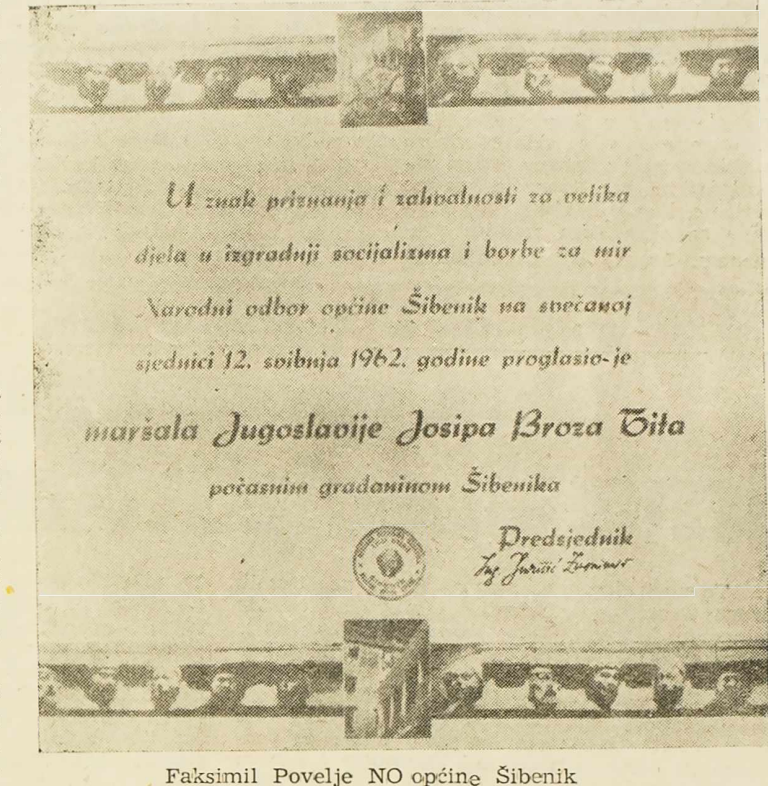 U znak priznanja i zahvalnosti za velika
djela u izgradnji socijalizma i borbe za mir
Narodni odbor općine Šibenik na svečanoj
sjednici 12. svibnja 1962. godine proglasio-je
maršala Jugoslavije Josipa Broza Tita
počasnim građaninom Šibenika
Predsjednik
Ing
Faksimil Povelje NO općine Šibenik